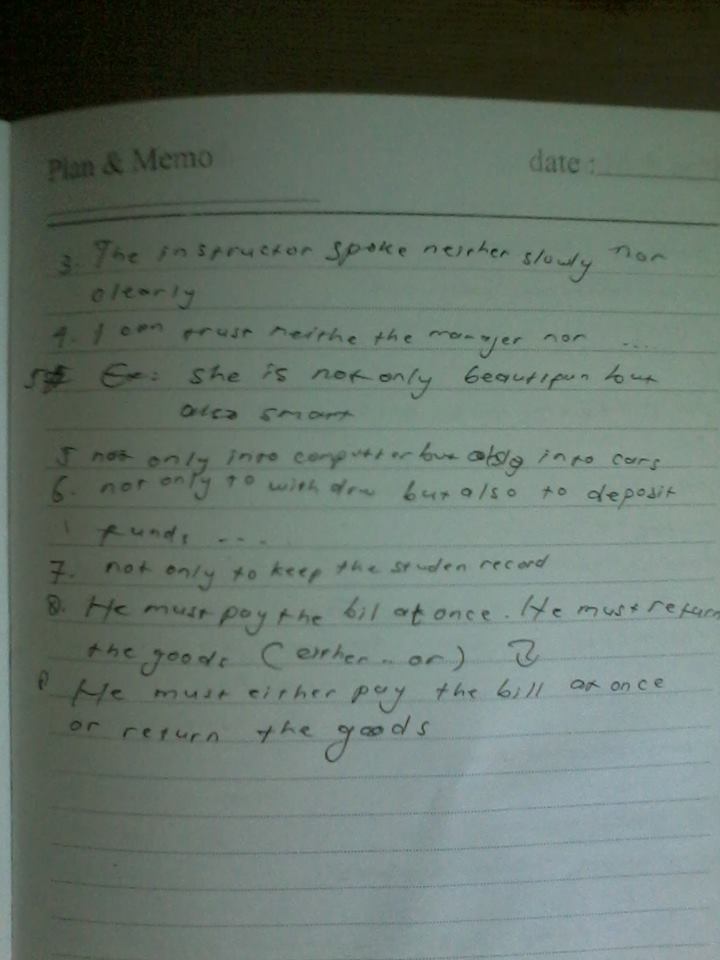 Plan & Memo
date :
3. The instructor spoke neither slowly nor
clearly
4. I can trust neithe the manager nor ....
5 Ex: she is not only beautifun but
also smart
5 not only into computter but also into cars
6. not only to withdrw but also to deposit
funds ...
7. not only to keep the studen record
8. He must pay the bil at once. He must return
the goods (either .. or)
He must either pay the bill at once
or return the goods